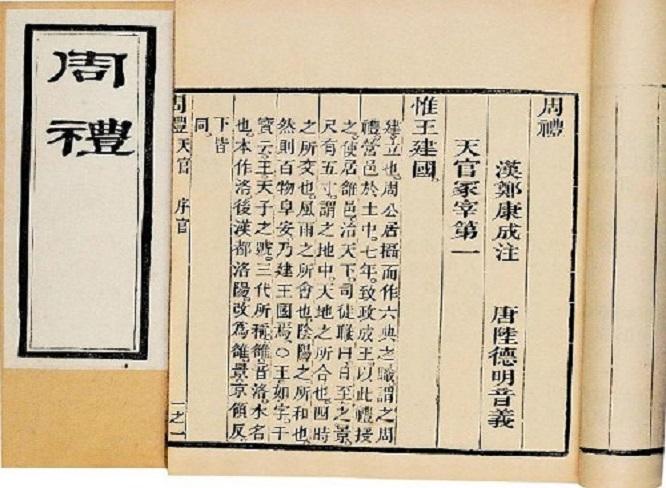 周禮
周禮
漢鄭康成注 唐陸德明音義
天官冢宰第一
惟王建國
建立也周公居攝而作六典之職謂之周
禮營邑於土中七年致政成王以此禮授
之使居雒邑治天下司徒職曰日至之景
尺有五寸謂之地中天地之所合也四時
之所交也風雨之所會也陰陽之所和也
然則百物阜安乃建王國焉○王如字干
寶云王天子之號三代所稱雒音洛水名
也本作洛後漢都洛陽改為雒景京領反
下皆
同
周禮 天官 序官 一之一